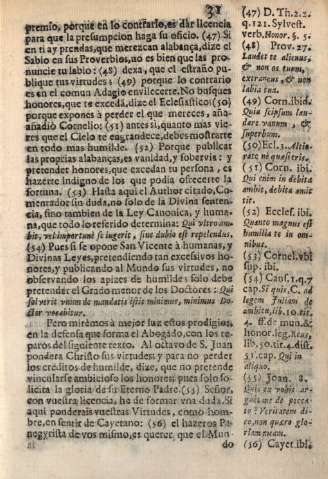 31
premio, porque en lo contrario, es dàr licencia
para que la presumpcion haga su oficio. (47) Si
en ti ay prendas, que merezcan alabança, dize el
Sabio en sus Proverbios, no es bien que las pro-
nuncie tu labio: (48) dexa, que el estraño pu-
blique tus virtudes; (49) porque lo contrario
es en el comun Adagio envilecerte. No busques
honores, que te exceda, dize el Eclesiastico (50)
porque expones à perder el que mereces, aña-
añadiò Cornelio: (51) antes si, quanto mas vie-
res que el Cielo te engrandece, debes mostrarte
en todo mas humilde. (52) Porque publicar
las proprias alabanças, es vanidad, y sobervia: y
pretender honores, que excedan tu persona, es
hazerte indigno de los que podia ofrecerte la
fortuna. (53) Hasta aqui el Author citado, Co-
mentador sin duda, no solo de la Divina senten-
cia, sino tambien de la Ley Canonica, y huma-
na, que todo lo referido determina: Qui ultro am-
bit, vel importunè se ingerit, sine dubio est repelendus.
(54) Pues si se opone San Vicente à humanas, y
Divinas Leyes, pretendiendo tan excesivos ho-
nores, y publicando al Mundo sus virtudes, no
observando los apizes de humilde; solo debe
pretender el Grado menor de los Doctores: Qui
solverit unum de mandatis istis minimis, minimus Do-
ctor vocabitur.
Pero miremos à mejor luz estos prodigios,
en la defensa que forma el Abogado, con los re-
paros del siguiente texto. Al octavo de S. Juan
pondera Christo sus virtudes; y para no perder
los creditos de humilde, dize, que no pretende
vincularse ambicioso los honores; pues solo so-
licita la gloria de su Eterno Padre. (55) Señor,
con vuestra licencia, he de formar una duda. Si
aqui ponderais vuestras Virtudes, como hom-
bre, en sentir de Cayetano: (56) el hazeros Pa-
negyrista de vos mismo, es querer, que el Mun-
do
(47) D. Th. 2. 2.
q. 121. Sylvest.
verb. Honor. 5. 5.
(48) Prov. 27.
Laudet te alienus,
& non os tuum,
extraneus, & non
labia tua.
(49) Corn. ibid.
Quia seipsum lau-
dare vanum, &
superbum.
(50) Ecl. 3. Altio-
ra te ne quæsieris.
(51) Corn. ibi.
Qui enim indebita
ambit, debita amit
tit.
(52) Eccles. ibi.
Quanto magnus es
humilia te in om-
nibus.
(53) Cornel. ubi
sup. ibi.
(54) Caus. 1. q. 7
cap. Si quis. C. ad
legem Juliam de
ambitu, lib. 10. tit.
4. ff. de mun. &
honor. leg.
lib. 50. tit. 4. dist.
51. cap. Qui in
aliquo.
(55) Joan. 8.
Quis ex vobis ar-
guet me de pecca-
to? Veritatem di-
co, non quæro glo-
riam meam.
(56) Cayet. ibi.